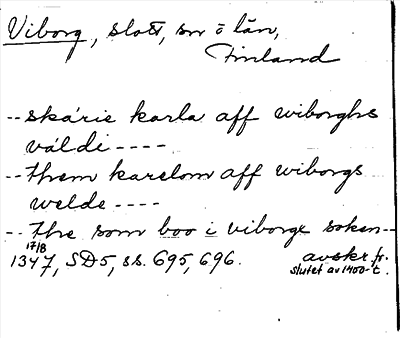 Viborg, slott, sn o län,
Finland
-- skárie karla aff wiborghs
váldi ----
-- them karelom aff wiborgs
welde ----
-- the som boo i viborgx soken --
17/8
1347, SD5, ss. 695, 696. avskr. fr.
slutet av 1400-t.